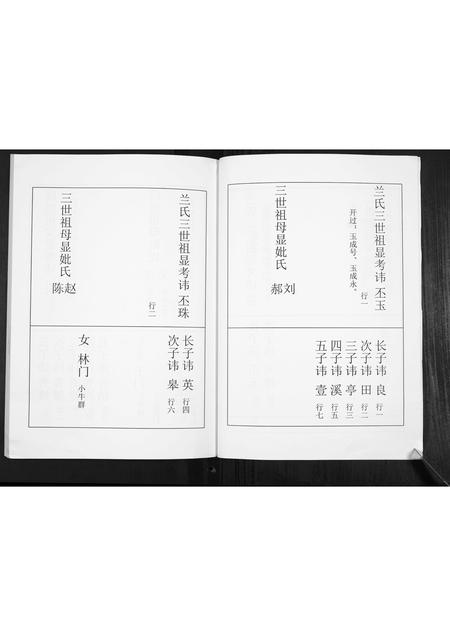 兰氏三世祖显考讳 丕玉
行一
开过,玉成号、玉成永。
三世祖母显妣氏
刘
郝
长子讳 良 行一
次子讳 田 行二
三子讳 亭 行三
四子讳 溪 行五
五子讳 壹 行七
兰氏三世祖显考讳 丕珠
行二
三世祖母显妣氏
赵
陈
长子讳 英 行四
次子讳 皋 行六
女 林门 小牛群